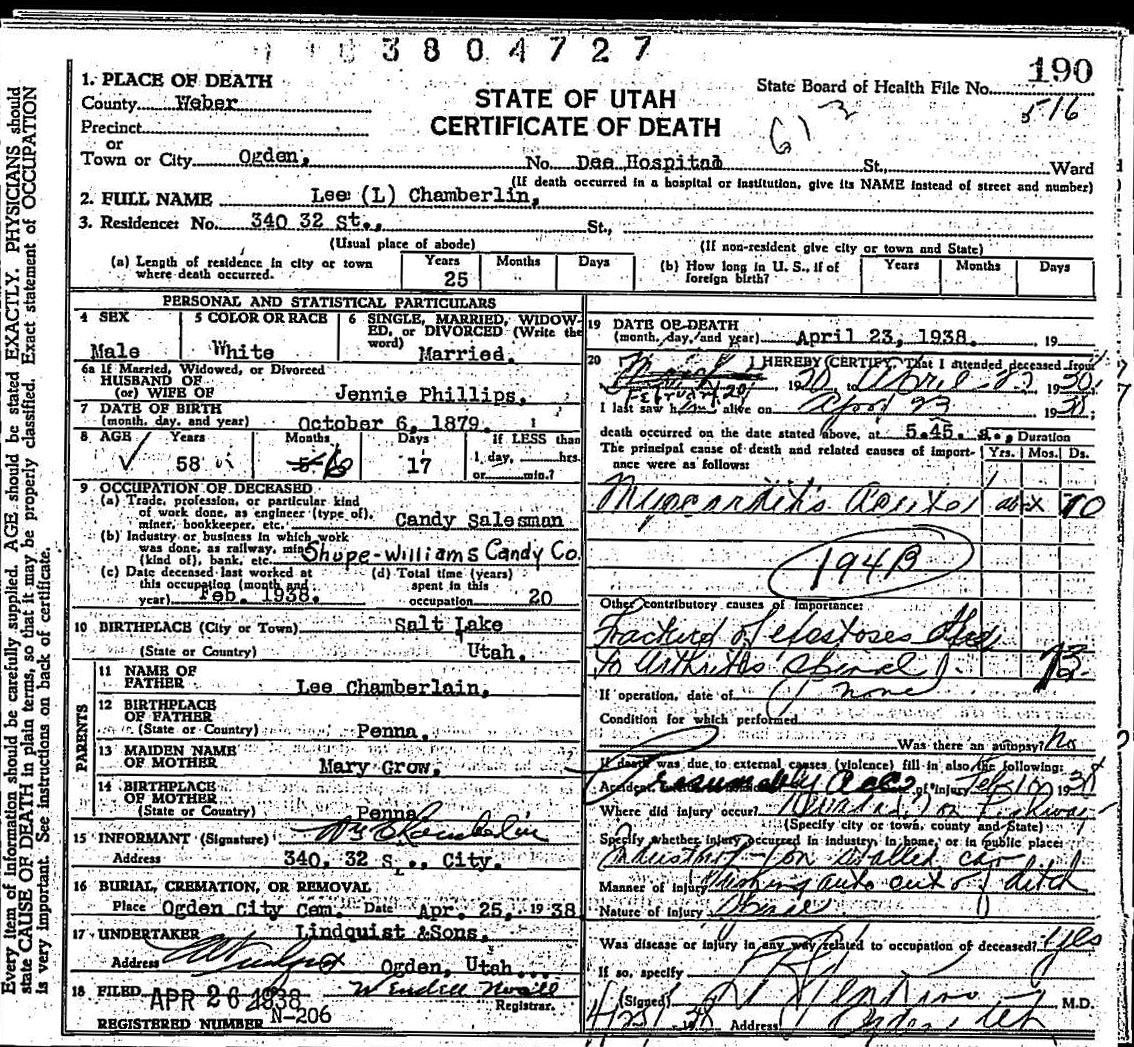 3804727
190
State Board of Health File No.
516
STATE OF UTAH
CERTIFICATE OF DEATH
1. PLACE OF DEATH
County Weber
Precinct
or
Town or City Ogden, No. Dee Hospital St., Ward
(If death occurred in a hospital or institution, give its NAME instead of street and number)
2. FULL NAME Lee (L) Chamberlin,
3. Residence: No. 340 32 St., St.,
(Usual place of abode) (If non-resident give city or town and State)
(a) Length of residence in city or town where death occurred. Years 25 Months Days
(b) How long in U. S., if of foreign birth? Years Months Days
PERSONAL AND STATISTICAL PARTICULARS
4 SEX Male
5 COLOR OR RACE White
6 SINGLE, MARRIED, WIDOWED, or DIVORCED (Write the word) Married.
6a If Married, Widowed, or Divorced
HUSBAND OF
(or) WIFE OF Jennie Phillips,
7 DATE OF BIRTH
(month, day, and year) October 6, 1879.
8 AGE Years 58 Months 6 Days 17
If LESS than
1 day, hrs.
or min.?
9 OCCUPATION OF DECEASED
(a) Trade, profession, or particular kind
of work done, as engineer (type of),
miner, bookkeeper, etc. Candy Salesman
(b) Industry or business in which work
was done, as railway, mine
(kind of), bank, etc. Shupe-Williams Candy Co.
(c) Date deceased last worked at
this occupation (month and
year) Feb. 1938.
(d) Total time (years)
spent in this
occupation 20
10 BIRTHPLACE (City or Town) Salt Lake
(State or Country) Utah.
PARENTS
11 NAME OF
FATHER Lee Chamberlain,
12 BIRTHPLACE
OF FATHER
(State or Country) Penna.
13 MAIDEN NAME
OF MOTHER Mary Grow,
14 BIRTHPLACE
OF MOTHER
(State or Country) Penna
15 INFORMANT (Signature)
Address 340, 32 S ., City.
16 BURIAL, CREMATION, OR REMOVAL
Place Ogden City Cem. Date Apr. 25, 1938
17 UNDERTAKER Lindquist & Sons,
Address Ogden, Utah
18 FILED APR 26 1938 Wendell
Registrar.
REGISTERED NUMBER N-206
19 DATE OF DEATH
(month, day, and year) April 23, 1938. 19
20 I HEREBY CERTIFY, That I attended deceased from
February 20 19 to April 23 19
I last saw him alive on April 23 19 ;
death occurred on the date stated above, at 5.45. a., Duration
The principal cause of death and related causes of importance were as follows: Yrs. Mos. Ds.
Myocarditis acute 70
194B
Other contributory causes of importance:
to arthritis spinal
If operation, date of none
Condition for which performed
Was there an autopsy? No
If death was due to external causes (violence) fill in also the following:
Accident, Presumably of injury Feb 19
Where did injury occur? on Highway
(Specify city or town, county and State)
Specify whether injury occurred in industry, in home, or in public place:
stalled car
Manner of injury Pushing auto out of ditch
Nature of injury
Was disease or injury in any way related to occupation of deceased? Yes
If so, specify
(Signed) M.D.
Address Ogden Utah
Every item of information should be carefully supplied. AGE should be stated EXACTLY. PHYSICIANS should
state CAUSE OF DEATH in plain terms, so that it may be properly classified. Exact statement of OCCUPATION
is very important. See instructions on back of certificate.